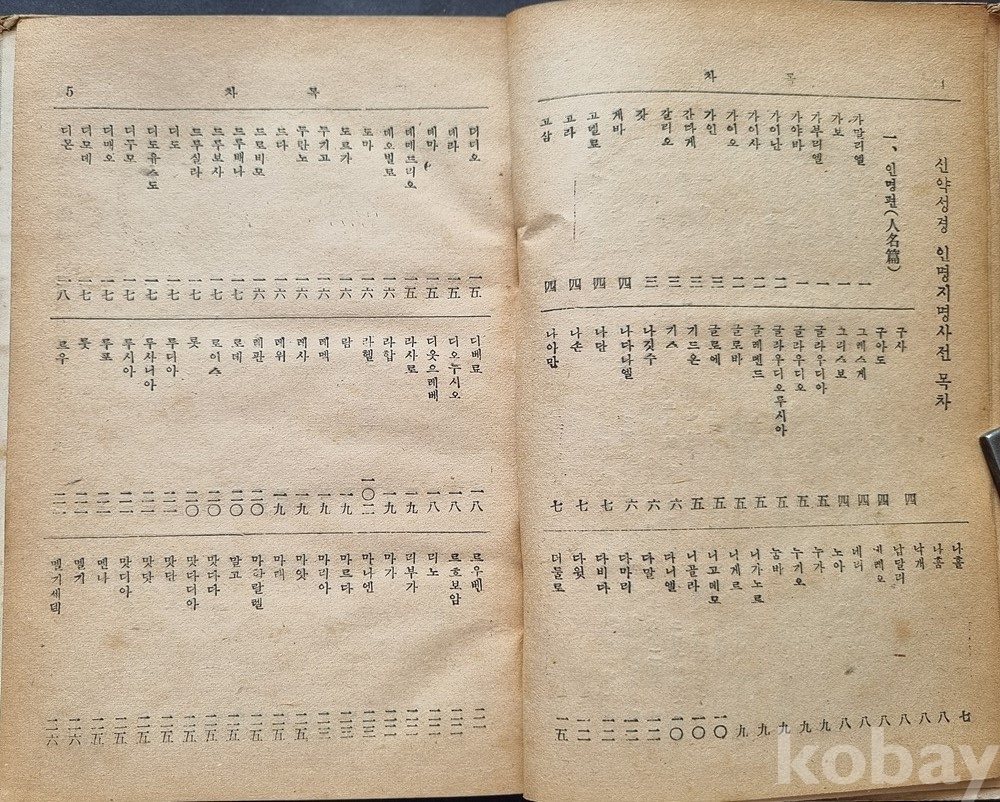 목 차
신약성경 인명지명사전 목차
一、인명편(人名篇)
가말리엘 一
가보 一
가부리엘 一
가야바 一
가이난 二
가이사 二
가이오 二
가인 三
간다게 三
갈리오 三
갓 三
게바 四
고넬료 四
고라 四
고삼 四
구사 四
구아도 四
그레스게 四
그리스보 四
글라우디아 五
글라우디오 五
글라우디오루시아 五
글레멘드 五
글로바 五
글로에 五
기드온 五
기스 六
나깃수 六
나다나엘 六
나단 七
나손 七
나아만 七
나홀 七
나훔 八
낙개 八
납달리 八
네레오 八
네리 八
노아 八
누가 九
누기오 九
눙바 九
니가노르 九
니게르 九
니고데모 一〇
니골라 一〇
다니엘 一〇
다말 一二
다마리 一二
다비다 一二
다윗 一二
더둘로 一五
목 차 5
더디오 一五
데라 一五
데마 一五
데메드리오 一五
데오빌로 一六
도마 一六
도르가 一六
두기고 一六
두란노 一六
드다 一六
드로비모 一六
드루배나 一七
드루보사 一七
드루실라 一七
디도 一七
디도유스도 一七
디두모 一七
디매오 一七
디모데 一七
디몬 一八
디베료 一八
디오누시오 一八
디옷으레베 一八
라사로 一九
라합 一九
라헬 一〇二
람 一九
레멕 一九
레사 一九
레위 一九
레판 二〇
로데 二〇
로이스 二〇
롯 二〇
루디아 二一
루사니아 二一
루시아 二一
루포 二一
룻 二一
르우 二一
르우벤 二一
르호보암 二二
리노 二二
리부가 二二
마가 二二
마나엔 二三
마르다 二三
마리아 二三
마앗 二五
마태 二五
마할랄렐 二五
말고 二五
맛다다 二五
맛다디아 二五
맛단 二五
맛닷 二五
맛디아 二五
멘나 二五
멜기 二六
멜기세덱 二六
kobay